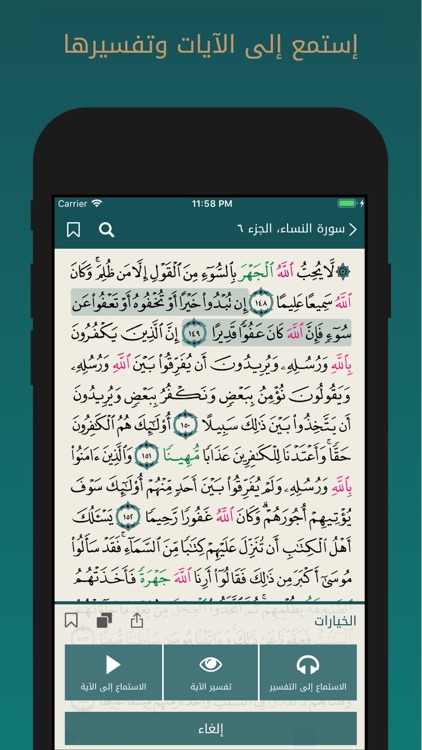 إستمع إلى الآيات وتفسيرها
Carrier 11:58 PM
سورة النساء، الجزء ٦
لَّا يُحِبُّ ٱللَّهُ ٱلْجَهْرَ بِٱلسُّوٓءِ مِنَ ٱلْقَوْلِ إِلَّا مَن ظُلِمَ ۚ وَكَانَ
ٱللَّهُ سَمِيعًا عَلِيمًا ١٤٨ إِن تُبْدُوا۟ خَيْرًا أَوْ تُخْفُوهُ أَوْ تَعْفُوا۟ عَن
سُوٓءٍ فَإِنَّ ٱللَّهَ كَانَ عَفُوًّا قَدِيرًا ١٤٩ إِنَّ ٱلَّذِينَ يَكْفُرُونَ
بِٱللَّهِ وَرُسُلِهِۦ وَيُرِيدُونَ أَن يُفَرِّقُوا۟ بَيْنَ ٱللَّهِ وَرُسُلِهِۦ
وَيَقُولُونَ نُؤْمِنُ بِبَعْضٍ وَنَكْفُرُ بِبَعْضٍ وَيُرِيدُونَ
أَن يَتَّخِذُوا۟ بَيْنَ ذَٰلِكَ سَبِيلًا ١٥٠ أُو۟لَٰٓئِكَ هُمُ ٱلْكَٰفِرُونَ
حَقًّا ۚ وَأَعْتَدْنَا لِلْكَٰفِرِينَ عَذَابًا مُّهِينًا ١٥١ وَٱلَّذِينَ ءَامَنُوا۟
بِٱللَّهِ وَرُسُلِهِۦ وَلَمْ يُفَرِّقُوا۟ بَيْنَ أَحَدٍ مِّنْهُمْ أُو۟لَٰٓئِكَ سَوْفَ
يُؤْتِيهِمْ أُجُورَهُمْ ۗ وَكَانَ ٱللَّهُ غَفُورًا رَّحِيمًا ١٥٢ يَسْـَٔلُكَ
أَهْلُ ٱلْكِتَٰبِ أَن تُنَزِّلَ عَلَيْهِمْ كِتَٰبًا مِّنَ ٱلسَّمَآءِ ۚ فَقَدْ سَأَلُوا۟
مُوسَىٰٓ أَكْبَرَ مِن ذَٰلِكَ فَقَالُوٓا۟ أَرِنَا ٱللَّهَ جَهْرَةً فَأَخَذَتْهُمُ
الخيارات
الاستماع إلى التفسير
تفسير الآية
الاستماع إلى الآية
إلغاء